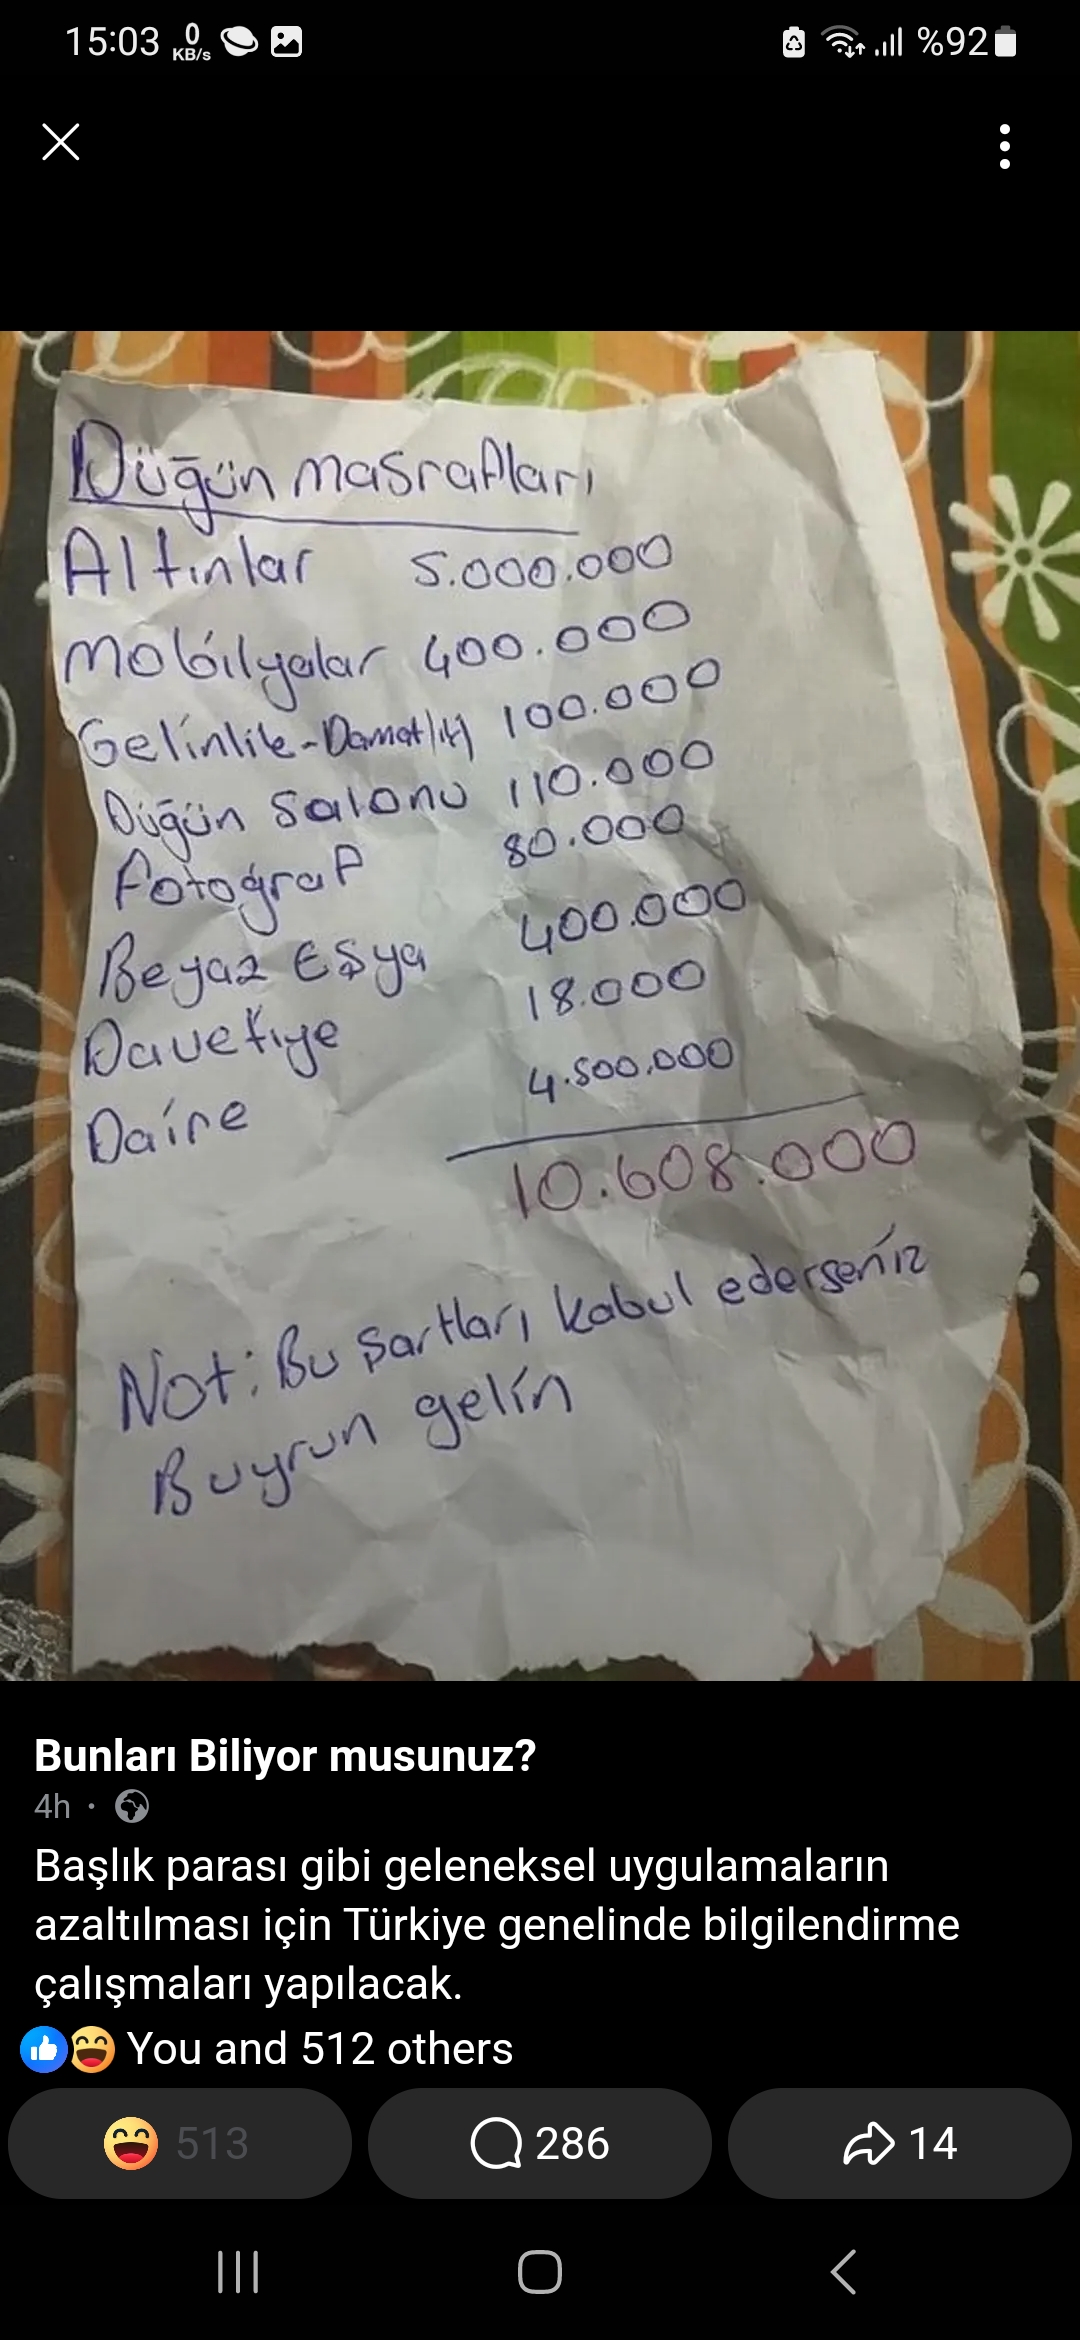 15:03 0 KB/s %92
Düğün masrafları
Altınlar 5.000.000
Mobilyalar 400.000
Gelinlik-Damatlık 100.000
Düğün Salonu 110.000
fotoğraf 80.000
Beyaz Eşya 400.000
Davetiye 18.000
Daire 4.500.000
10.608.000
Not: Bu şartları kabul ederseniz
Buyrun gelin
Bunları Biliyor musunuz?
4h ·
Başlık parası gibi geleneksel uygulamaların
azaltılması için Türkiye genelinde bilgilendirme
çalışmaları yapılacak.
You and 512 others
513 286 14